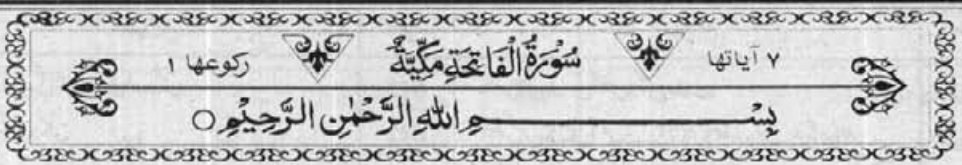 ٧ آياتها سُوْرَةُ الْفَاتِحَةِ مَكِّيَّةٌ ركوعها ١
بِسْمِ اللهِ الرَّحْمٰنِ الرَّحِيْمِ ○